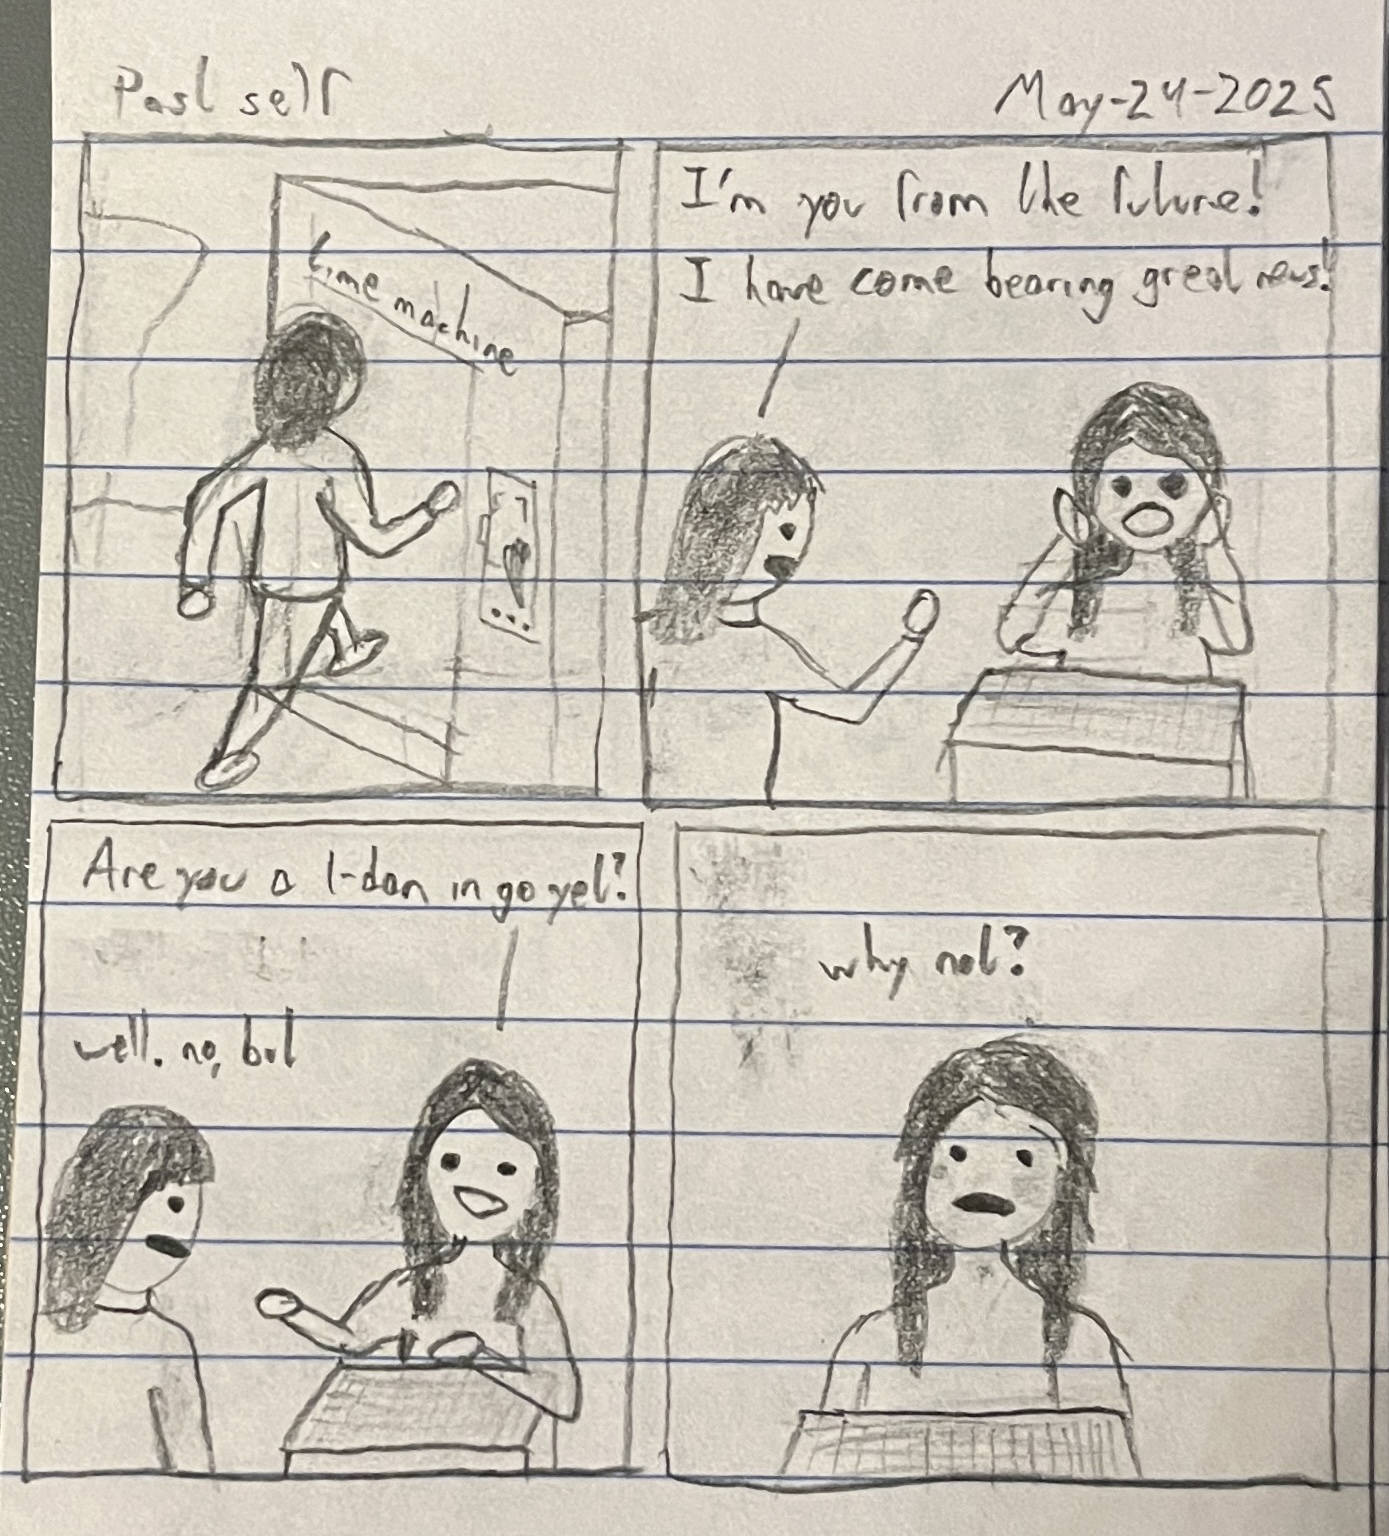 Past self
May-24-2025
time machine
I'm you from the future!
I have come bearing great news!
Are you a 1-dan in go yet?
well. no, but
why not?